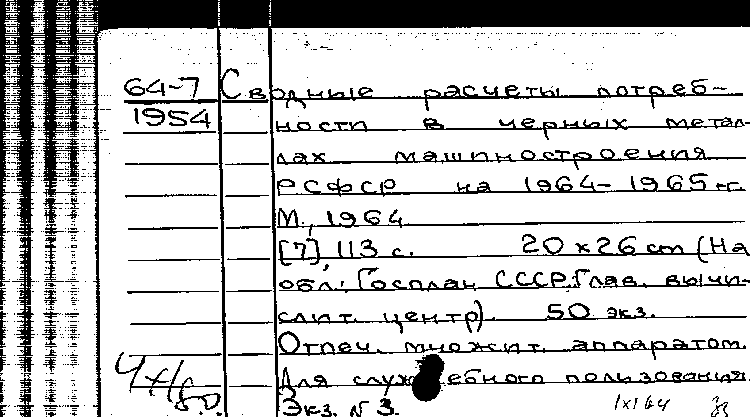 64-7 Сводные расчеты потреб-
1954 ности в черных метал-
лах машиностроения
РСФСР на 1964-1965 гг.
М., 1964
[7], 113 с. 20 x 26 cm (На
обл.: Госплан СССР. Глав. вычи-
слит. центр). 50 экз.
Отпеч. множит. аппаратом.
Для служебного пользования.
Экз. N 3. 1x164